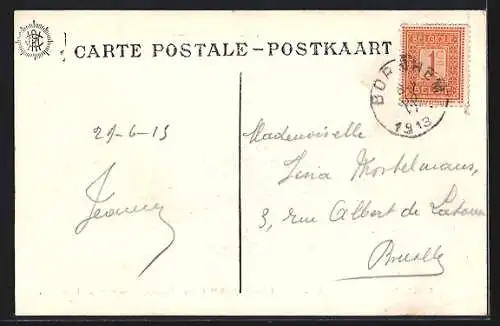 CARTE POSTALE – POSTKAART
BELGIE
1
BELGIQUE
BORNHEM
1913
29-6-13
Mademoiselle
Lina Mortelmans,
3, rue Albert de Latour
Bruxelles
Jeanne